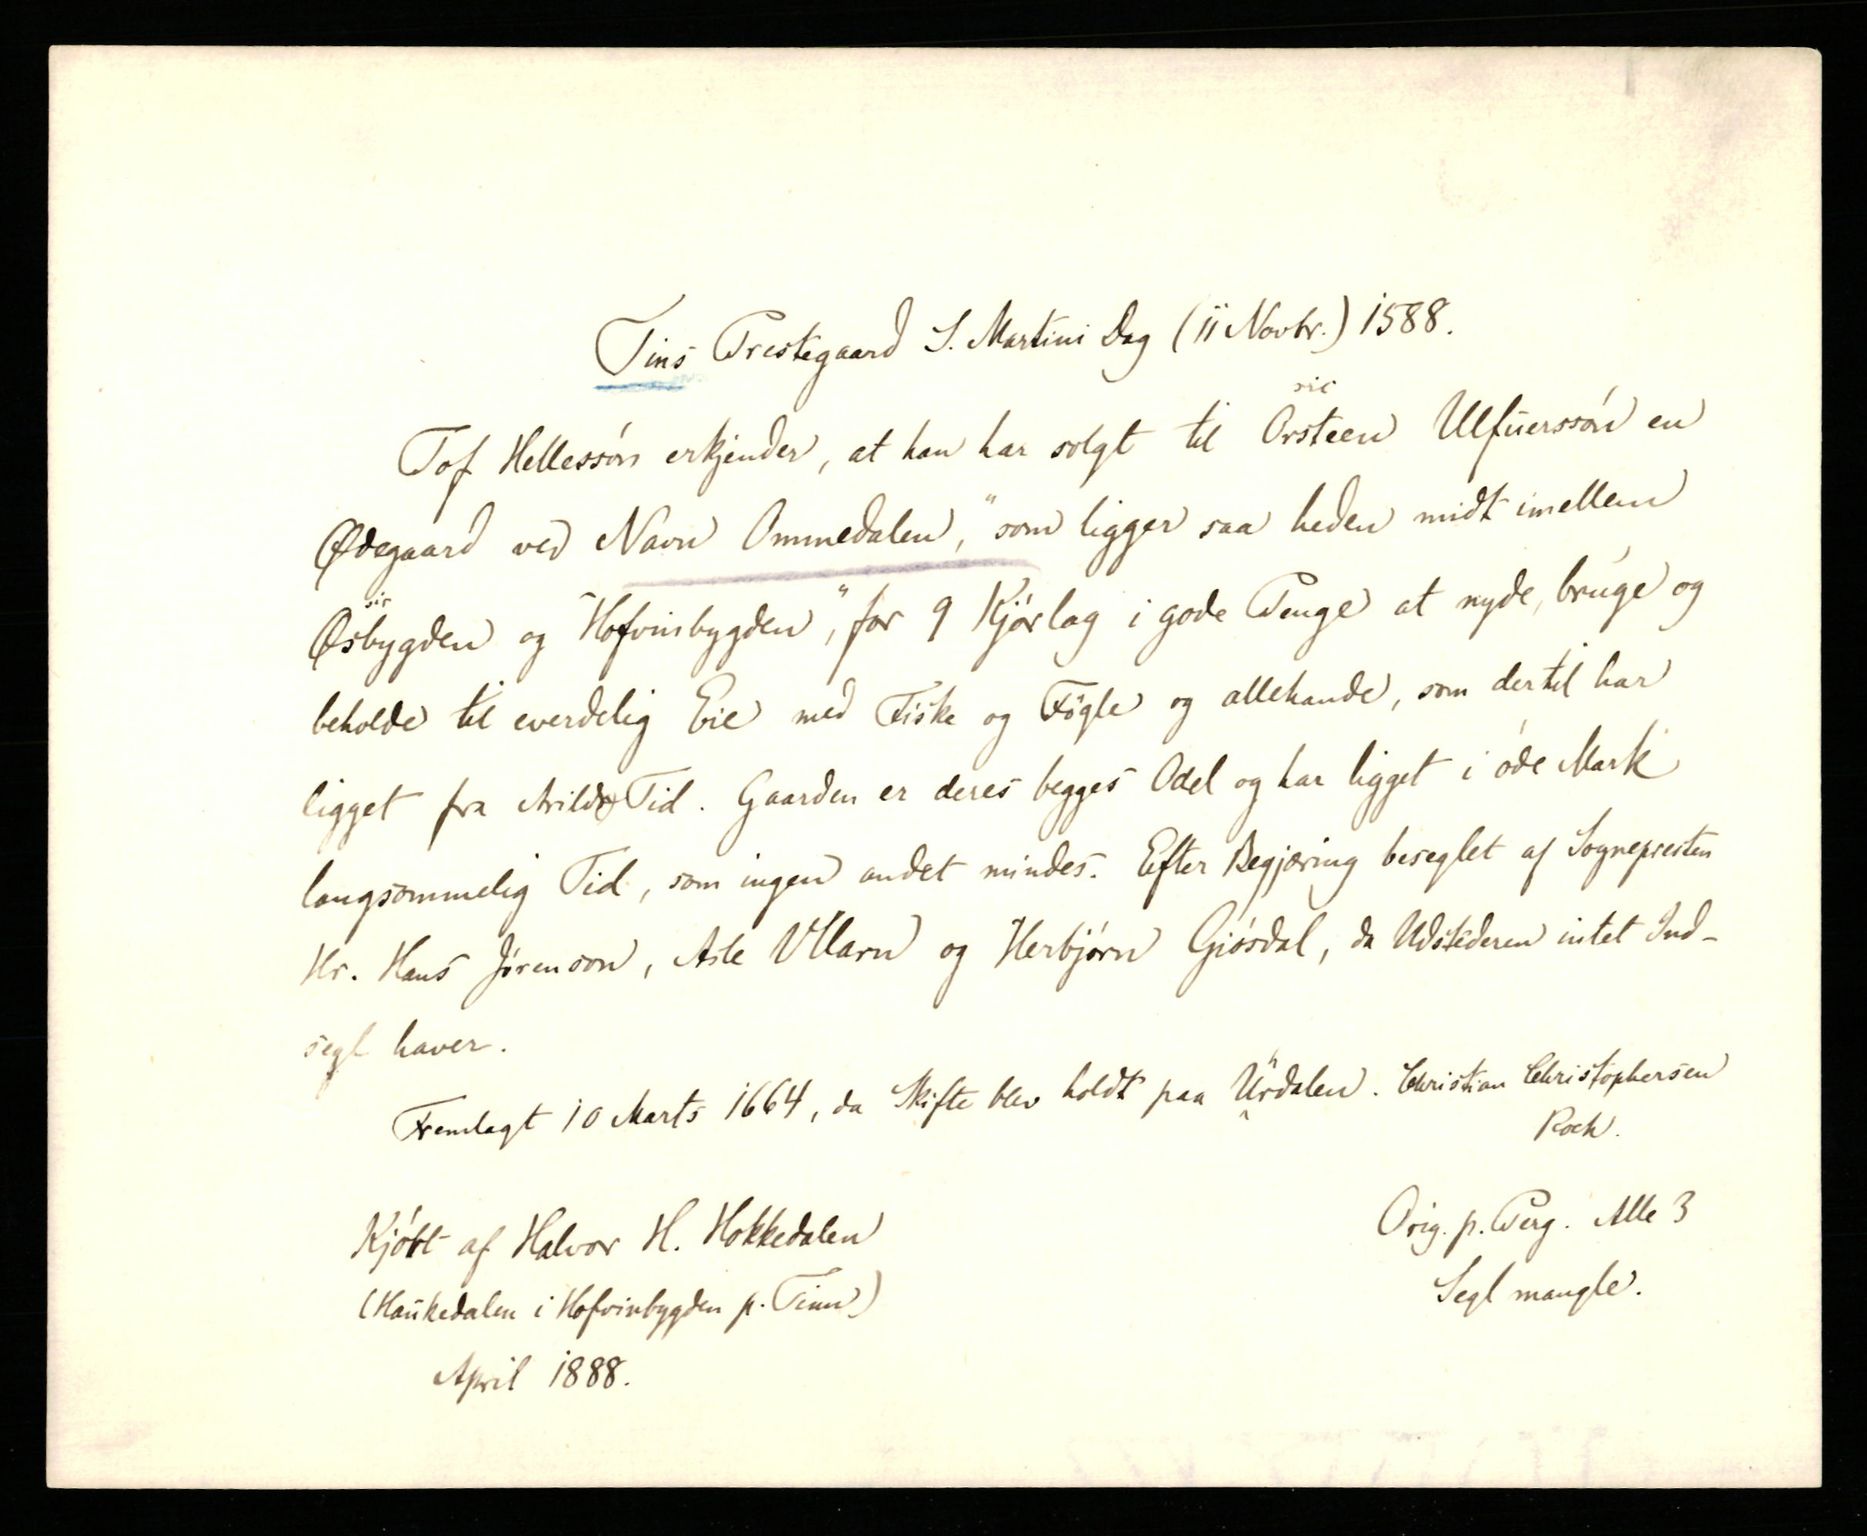 Tins Prestegaard S. Martini Dag (11 Novbr.) 1588.
sic
Tof Hellessøn erkjender, at han har solgt til Orsteen Ulfuerssøn en
Ødegaard ved Navn Ommedalen, "som ligger saa heden midt imellem
sic
Øsbygden og Hofvinbygden", for 9 Kjørlag i gode Penge at nyde, bruge og
beholde til everdelig Eie med Fiske og Fögle og allehande, som dertil har
ligget fra Arilds Tid. Gaarden er deres begges Odel og har ligget i øde Mark
langsommelig Tid, som ingen andet mindes. Efter Begjæring beseglet af Sognepresten
Hr. Hans Jørenson, Asle Ullarn og Herbjørn Giøsdal, da Udstederen intet Ind-
segl haver.
Fremlagt 10 Marts 1664, da Skifte blev holdt paa Ürdalen. Christian Christophersen
Rock.
Kjøbt af Halvor H. Hokkedalen
(Haukedalen i Hofvinbygden p. Tinn)
April 1888.
Orig. p. Perg. Alle 3
Segl mangle.